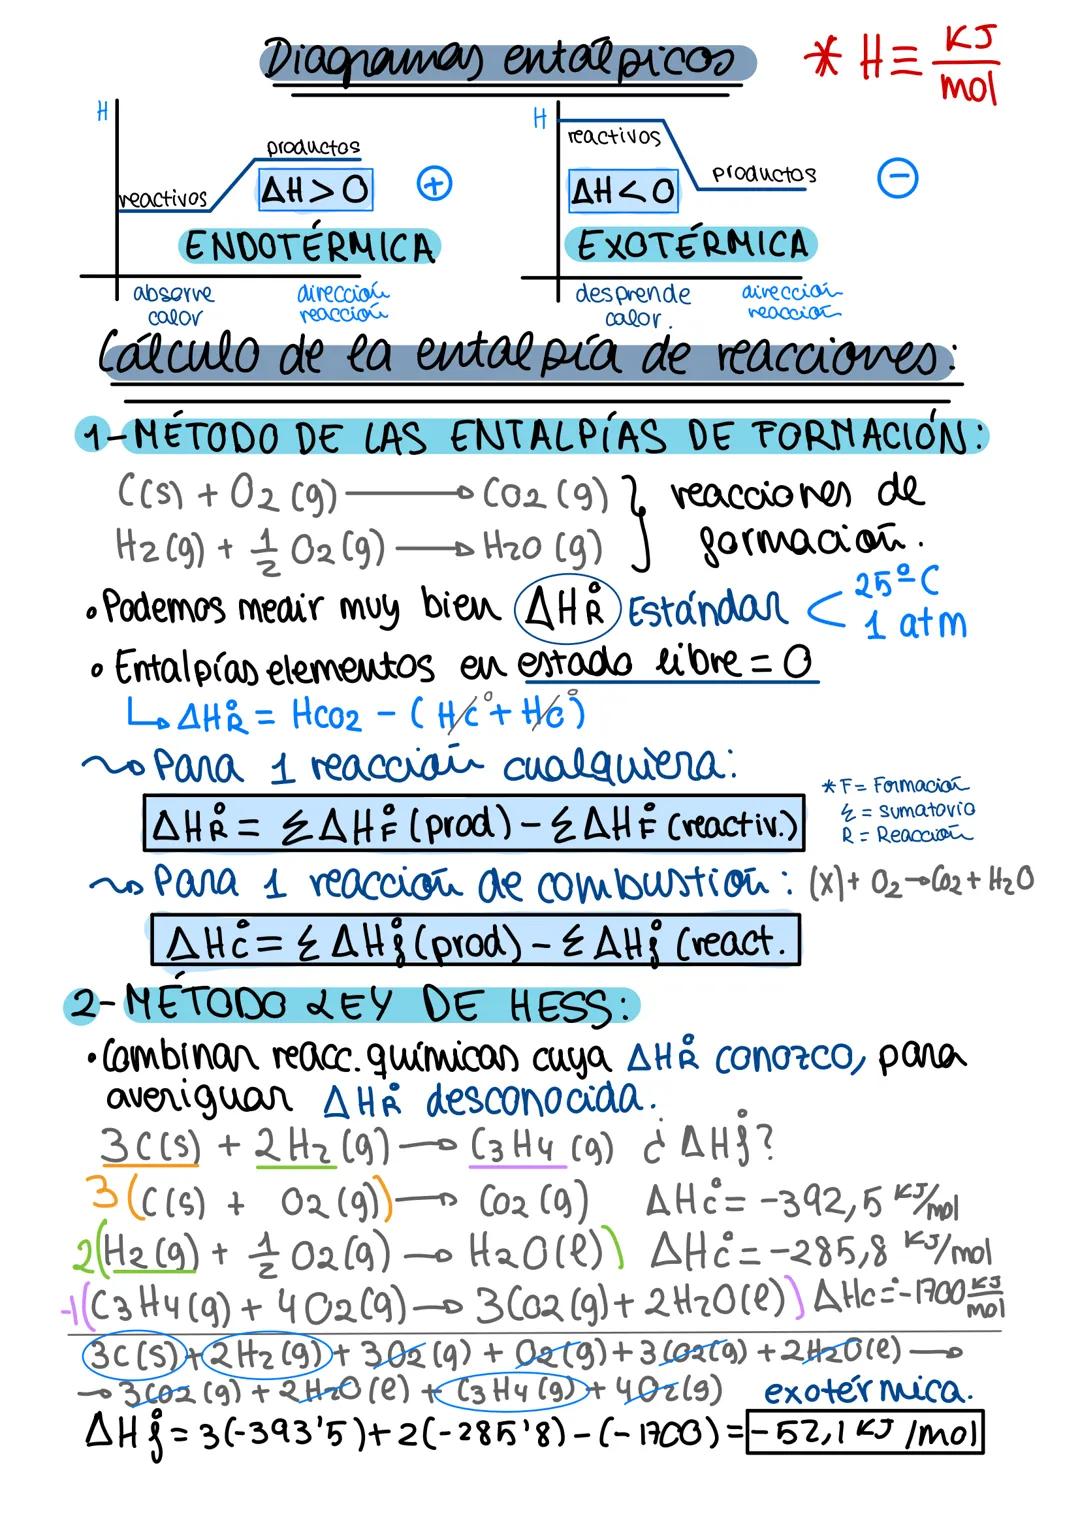 Diagramas entálpicos * H ≡ KJ/mol
H
productos
reactivos
ΔH > 0 (+)
ENDOTÉRMICA
absorve calor
dirección reacción
H
reactivos
productos
ΔH < 0 (−)
EXOTÉRMICA
desprende calor.
dirección reacción
Cálculo de la entalpía de reacciones:
1- MÉTODO DE LAS ENTALPÍAS DE FORMACIÓN:
C(s) + O2 (g) → CO2 (g) } reacciones de
H2(g) + 1/2 O2(g) → H2O (g) } formación.
• Podemos medir muy bien ΔH°R Estándar < 25ºC
1 atm
• Entalpías elementos en estado libre = 0
↳ ΔH°R = HCO2 − (H°C + H°O)
~> Para 1 reacción cualquiera:
* F = Formación
Σ = sumatorio
R = Reacción
ΔH°R = ΣΔH°F (prod) − ΣΔH°F (reactiv.)
~> Para 1 reacción de combustión: (x) + O2 → CO2 + H2O
ΔH°C = ΣΔH°f (prod) − ΣΔH°f (react.
2- MÉTODO LEY DE HESS:
• Combinar reacc. químicas cuya ΔH°R conozco, para
averiguar ΔH°R desconocida.
3C(s) + 2H2 (g) → C3H4 (g) ¿ΔH°f?
3(C(s) + O2(g)) → CO2 (g) ΔH°C = -392,5 KJ/mol
2(H2(g) + 1/2 O2(g) → H2O(l)) ΔH°C = -285,8 KJ/mol
-1(C3H4(g) + 4O2(g) → 3CO2(g) + 2H2O(l)) ΔH°C = -1700 KJ/mol
3C(s) + 2H2(g) + 3O2(g) + O2(g) + 3CO2(g) + 2H2O(l) →
→ 3CO2(g) + 2H2O(l) + C3H4(g) + 4O2(g) exotérmica.
ΔH°f = 3(-393'5) + 2(-285'8) − (-1700) = -52,1 KJ/mol